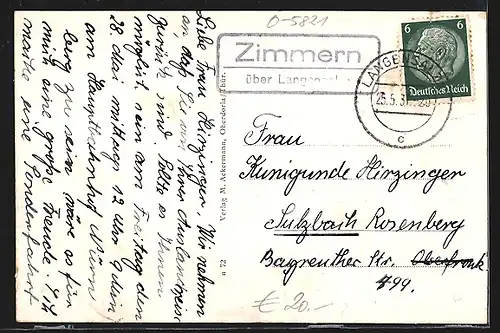 O-5821
Zimmern
über Langensalza
LANGENSALZA
25.5.37
c
6 6
Deutsches Reich
Liebe Frau Hirzinger, Wir nehmen
an, daß Sie von Ihrer Auslandreise
zurück sind. Sollte es Ihnen
möglich sein am Freitag den
28. Mai mittags 12 Uhr
am Hauptbahnhof Nürn-
berg zu sein wäre es für
mich eine große Freude.
mache eine Sonderfahrt
n 72 Verlag M. Ackermann, Oberdorla/Thür.
Frau
Kunigunde Hirzinger
Sulzbach Rosenberg
Bayreuther Str. Oberfrank
499.
€ 20.-